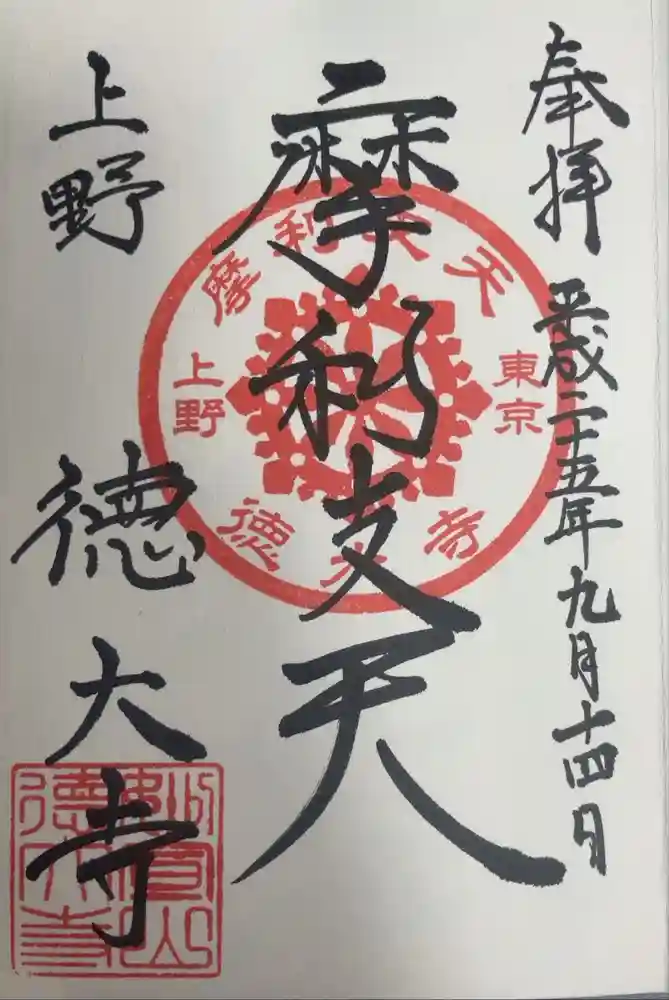 奉拝
平成二十五年九月十四日
摩利支天
上野
徳大寺
摩利支天
東京
上野
徳大寺
徳大寺